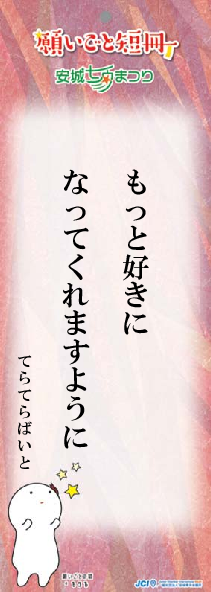 願いごと短冊
安城七夕まつり
もっと好きに
なってくれますように
てらてらばいと
願いごと短冊
JCI